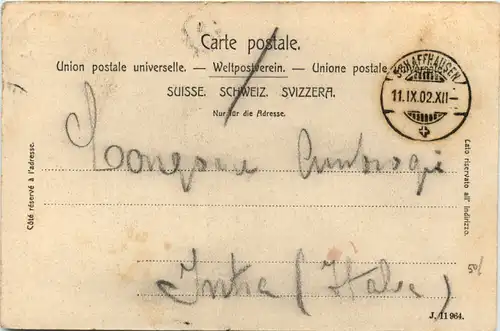 Carte postale.
Union postale universelle. — Weltpostverein. — Unione postale
SUISSE. SCHWEIZ. SVIZZERA.
Nur für die Adresse.
SCHAFFHAUSEN
11.IX.02.XII–
Côté réservé à l'adresse.
Lato riservato all' indirizzo.
Intra (Italia)
50/
J. 11964.